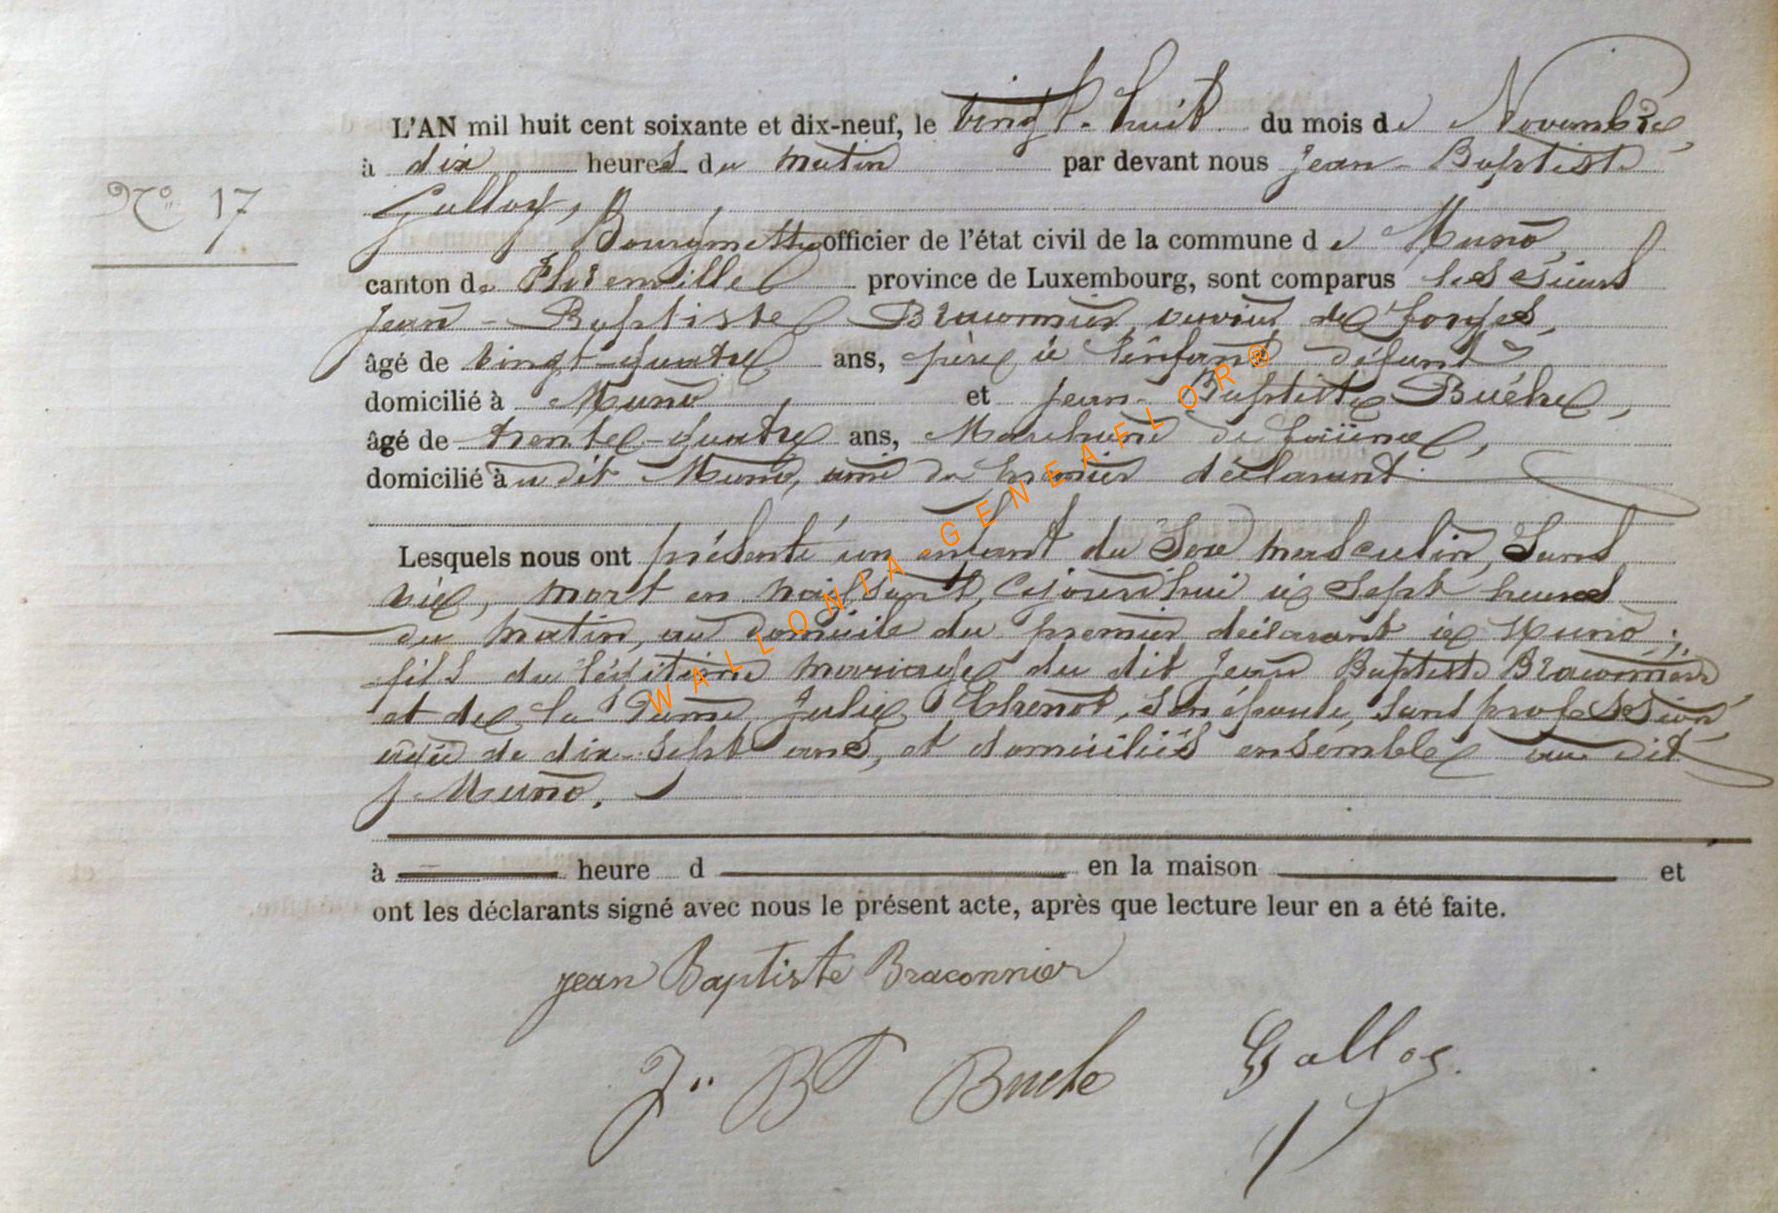 L'AN mil huit cent soixante et dix-neuf, le vingt-huit du mois de Novembre,
à dix heures du matin par devant nous Jean-Baptiste
N° 17
Bourgmestre officier de l'état civil de la commune de Muno,
canton de Florenville province de Luxembourg, sont comparus les sieurs
Jean-Baptiste Braconnier, ouvrier de forges,
âgé de vingt-quatre ans, père à l'enfant défunt
domicilié à Muno et Jean-Baptiste Buéhé,
âgé de trente-quatre ans, Marchand de faïence,
domicilié audit Muno, ami du premier déclarant.
Lesquels nous ont présenté un enfant du sexe masculin, sans
vie, mort en naissant, cejourd'hui à sept heures
du matin, au domicile du premier déclarant à Muno;
fils du légitime mariage du dit Jean Baptiste Braconnier
et de la Dame Julie Thenot, son épouse, sans profession,
agée de dix-sept ans, et domiciliés ensemble au dit
Muno.
à heure d en la maison et
ont les déclarants signé avec nous le présent acte, après que lecture leur en a été faite.
jean Baptiste Braconnier
J.. Bt Buehe
WALLONIA GENEAFLOR®